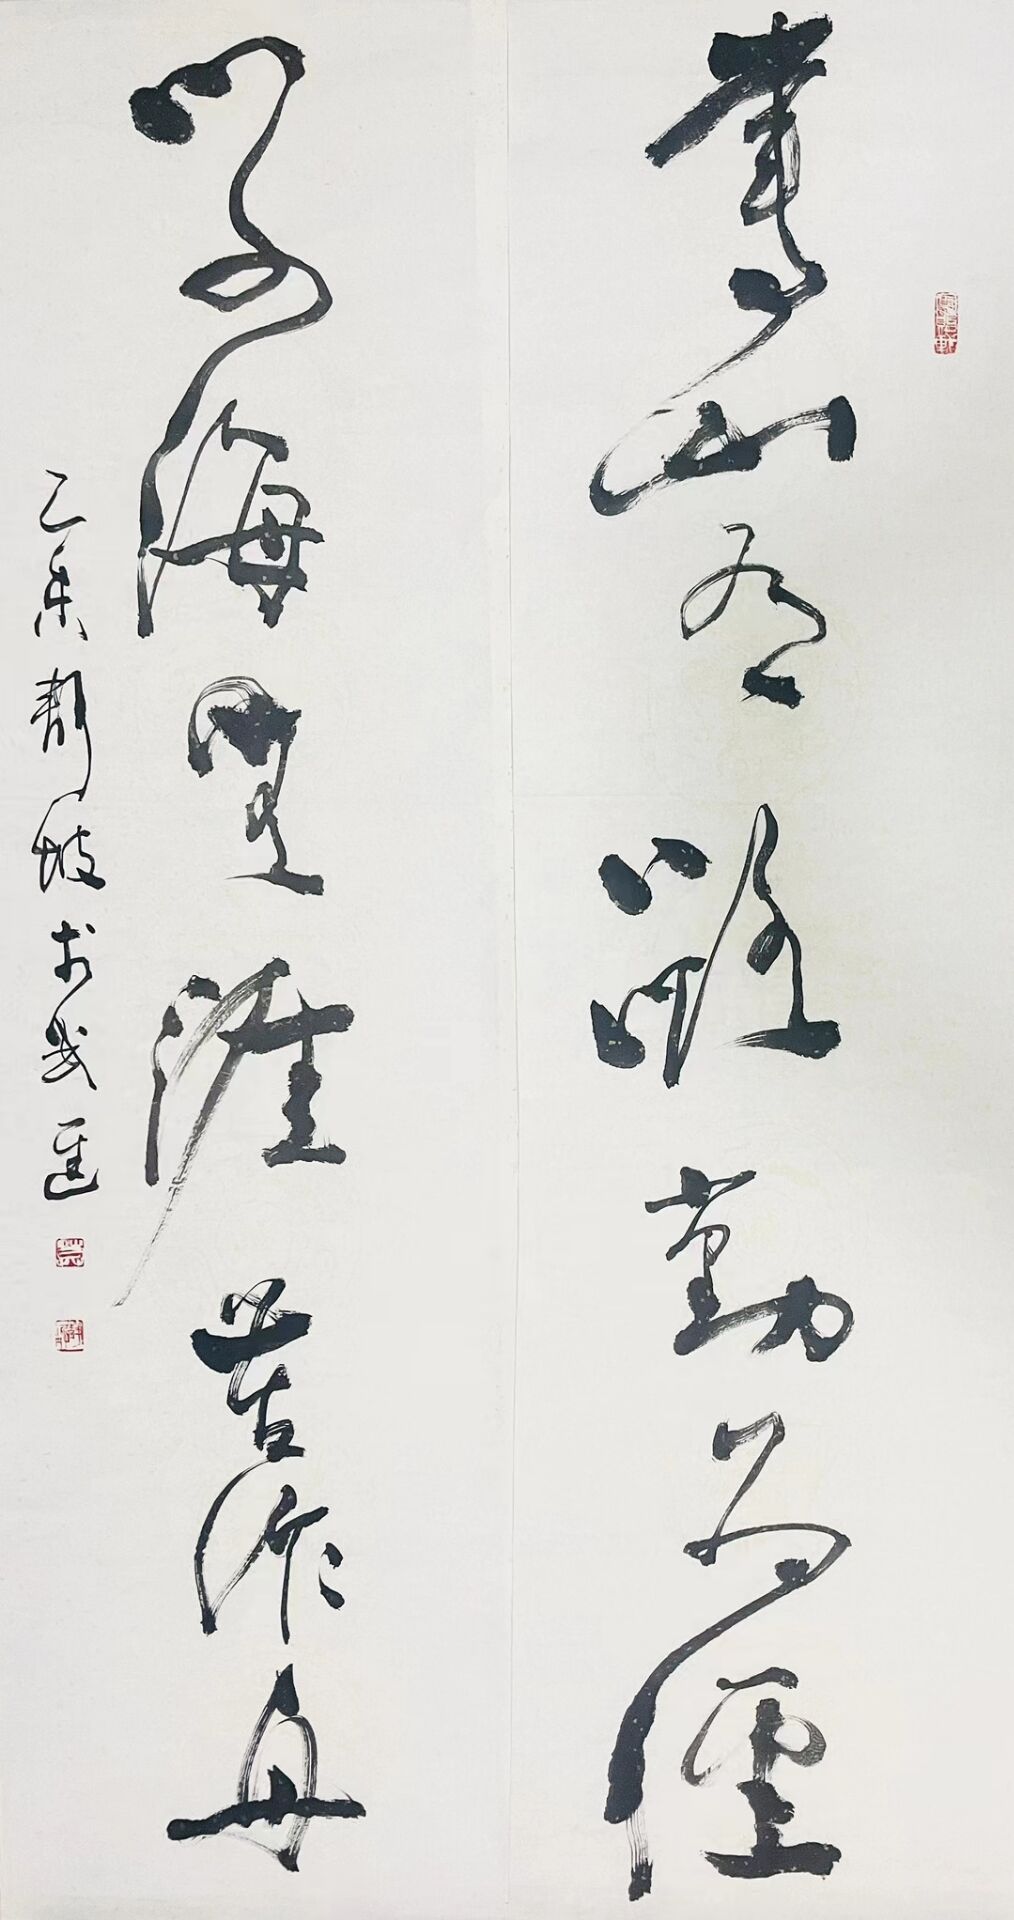 書山有路勤為徑
學海無涯苦作舟
乙未